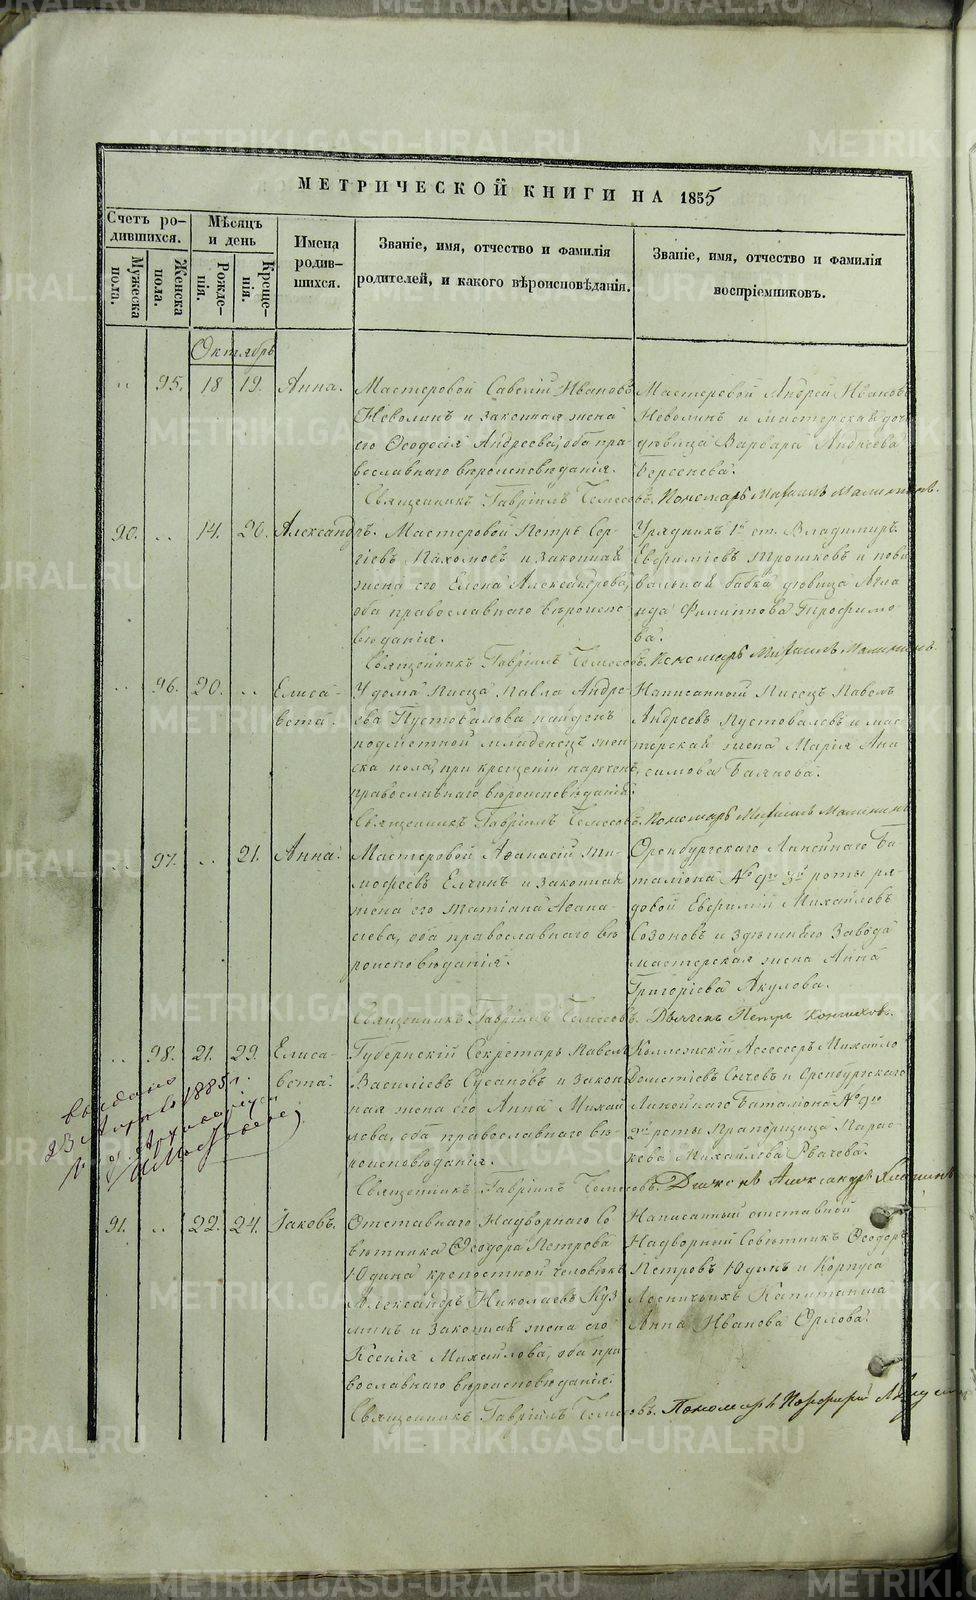 МЕТРИЧЕСКОЙ КНИГИ НА 1855
Счетъ ро-
дившихся.
Мужеска
пола.
Женска
пола.
Мѣсяцъ
и день
Рожде-
нія.
Креще-
нія.
Имена
родив-
шихся.
Званіе, имя, отчество и фамилія
родителей, и какого вѣроисповѣданія.
Званіе, имя, отчество и фамилія
воспріемниковъ.
Октябрь
95. 18 19. Анна.
Мастеровой Савелій Ивановъ
Неволинъ и законная жена
его Ѳеодосія Андреева, оба пра-
вославнаго вѣроисповѣданія.
Мастеровой Андрей Ивановъ
Неволинъ и мастерская дочь
дѣвица Варвара Андреева
Берсенева.
Священникъ Гавріилъ Пономарь Михаилъ Малининъ.
90. 14. 20. Александръ.
Мастеровой Петръ Сер-
гіевъ Пахомовъ и законная
жена его Елена Александрова,
оба православнаго вѣроиспо-
вѣданія.
Урядникъ 1й ст. Владимиръ
Евфиміевъ Трошковъ и пови-
вальная бабка дѣвица Агла-
ида Филиппова Трофимо-
ва.
Священникъ Гавріилъ Пономарь Михаилъ Малининъ.
96. 20. Елиса-
вета.
У дома писца Павла Андре-
ева Пустовалова найденъ
подметной младенецъ жен-
ска пола, при крещеніи нареченъ,
православнаго вѣроисповѣданія.
Написанный писецъ Павелъ
Андреевъ Пустоваловъ и мас-
терская жена Марія Ани-
симова Баянова.
Священникъ Гавріилъ Пономарь Михаилъ Малининъ
97. 21. Анна.
Мастеровой Аѳанасій Ти-
моѳеевъ Елчинъ и законная
жена его Татіана Аѳана-
сіева, оба православнаго вѣ-
роисповѣданія.
Оренбургскаго Линѣйнаго Ба-
таліона № 9го 3й роты ря-
довой Евфимій Михайловъ
Созоновъ и здѣшняго завода
мастерская жена Анна
Григоріева Акулова.
Священникъ Гавріилъ Дьячекъ Петръ
98. 21. 29. Елиса-
вета.
Губернскій Секретарь Павелъ
Василіевъ Сусановъ и закон-
ная жена его Анна Михай-
лова, оба православнаго вѣ-
роисповѣданія.
Коллежскій Ассесоръ Михайло
Дометіевъ Сычевъ и Оренбургскаго
Линѣйнаго Баталіона № 9го
2й роты Прапорщица Парас-
кева Михайлова Рвачева.
Священникъ Гавріилъ Александръ
Выдано
23 1885 г.
91. 22. 24. Іаковъ.
Отставнаго Надворнаго Со-
вѣтника Ѳеодора Петрова
Юдина крепостной человѣкъ
Александръ Николаевъ Куз-
минъ и законная жена его
Ксенія Михайлова, оба пра-
вославнаго вѣроисповѣданія.
Написанный отставной
Надворный Совѣтникъ Ѳеодоръ
Петровъ Юдинъ и Корпуса
Лесничихъ Капитанша
Анна Иванова Орлова.
Священникъ Гавріилъ Пономарь Порфирій
METRIKI.GASO-URAL.RU